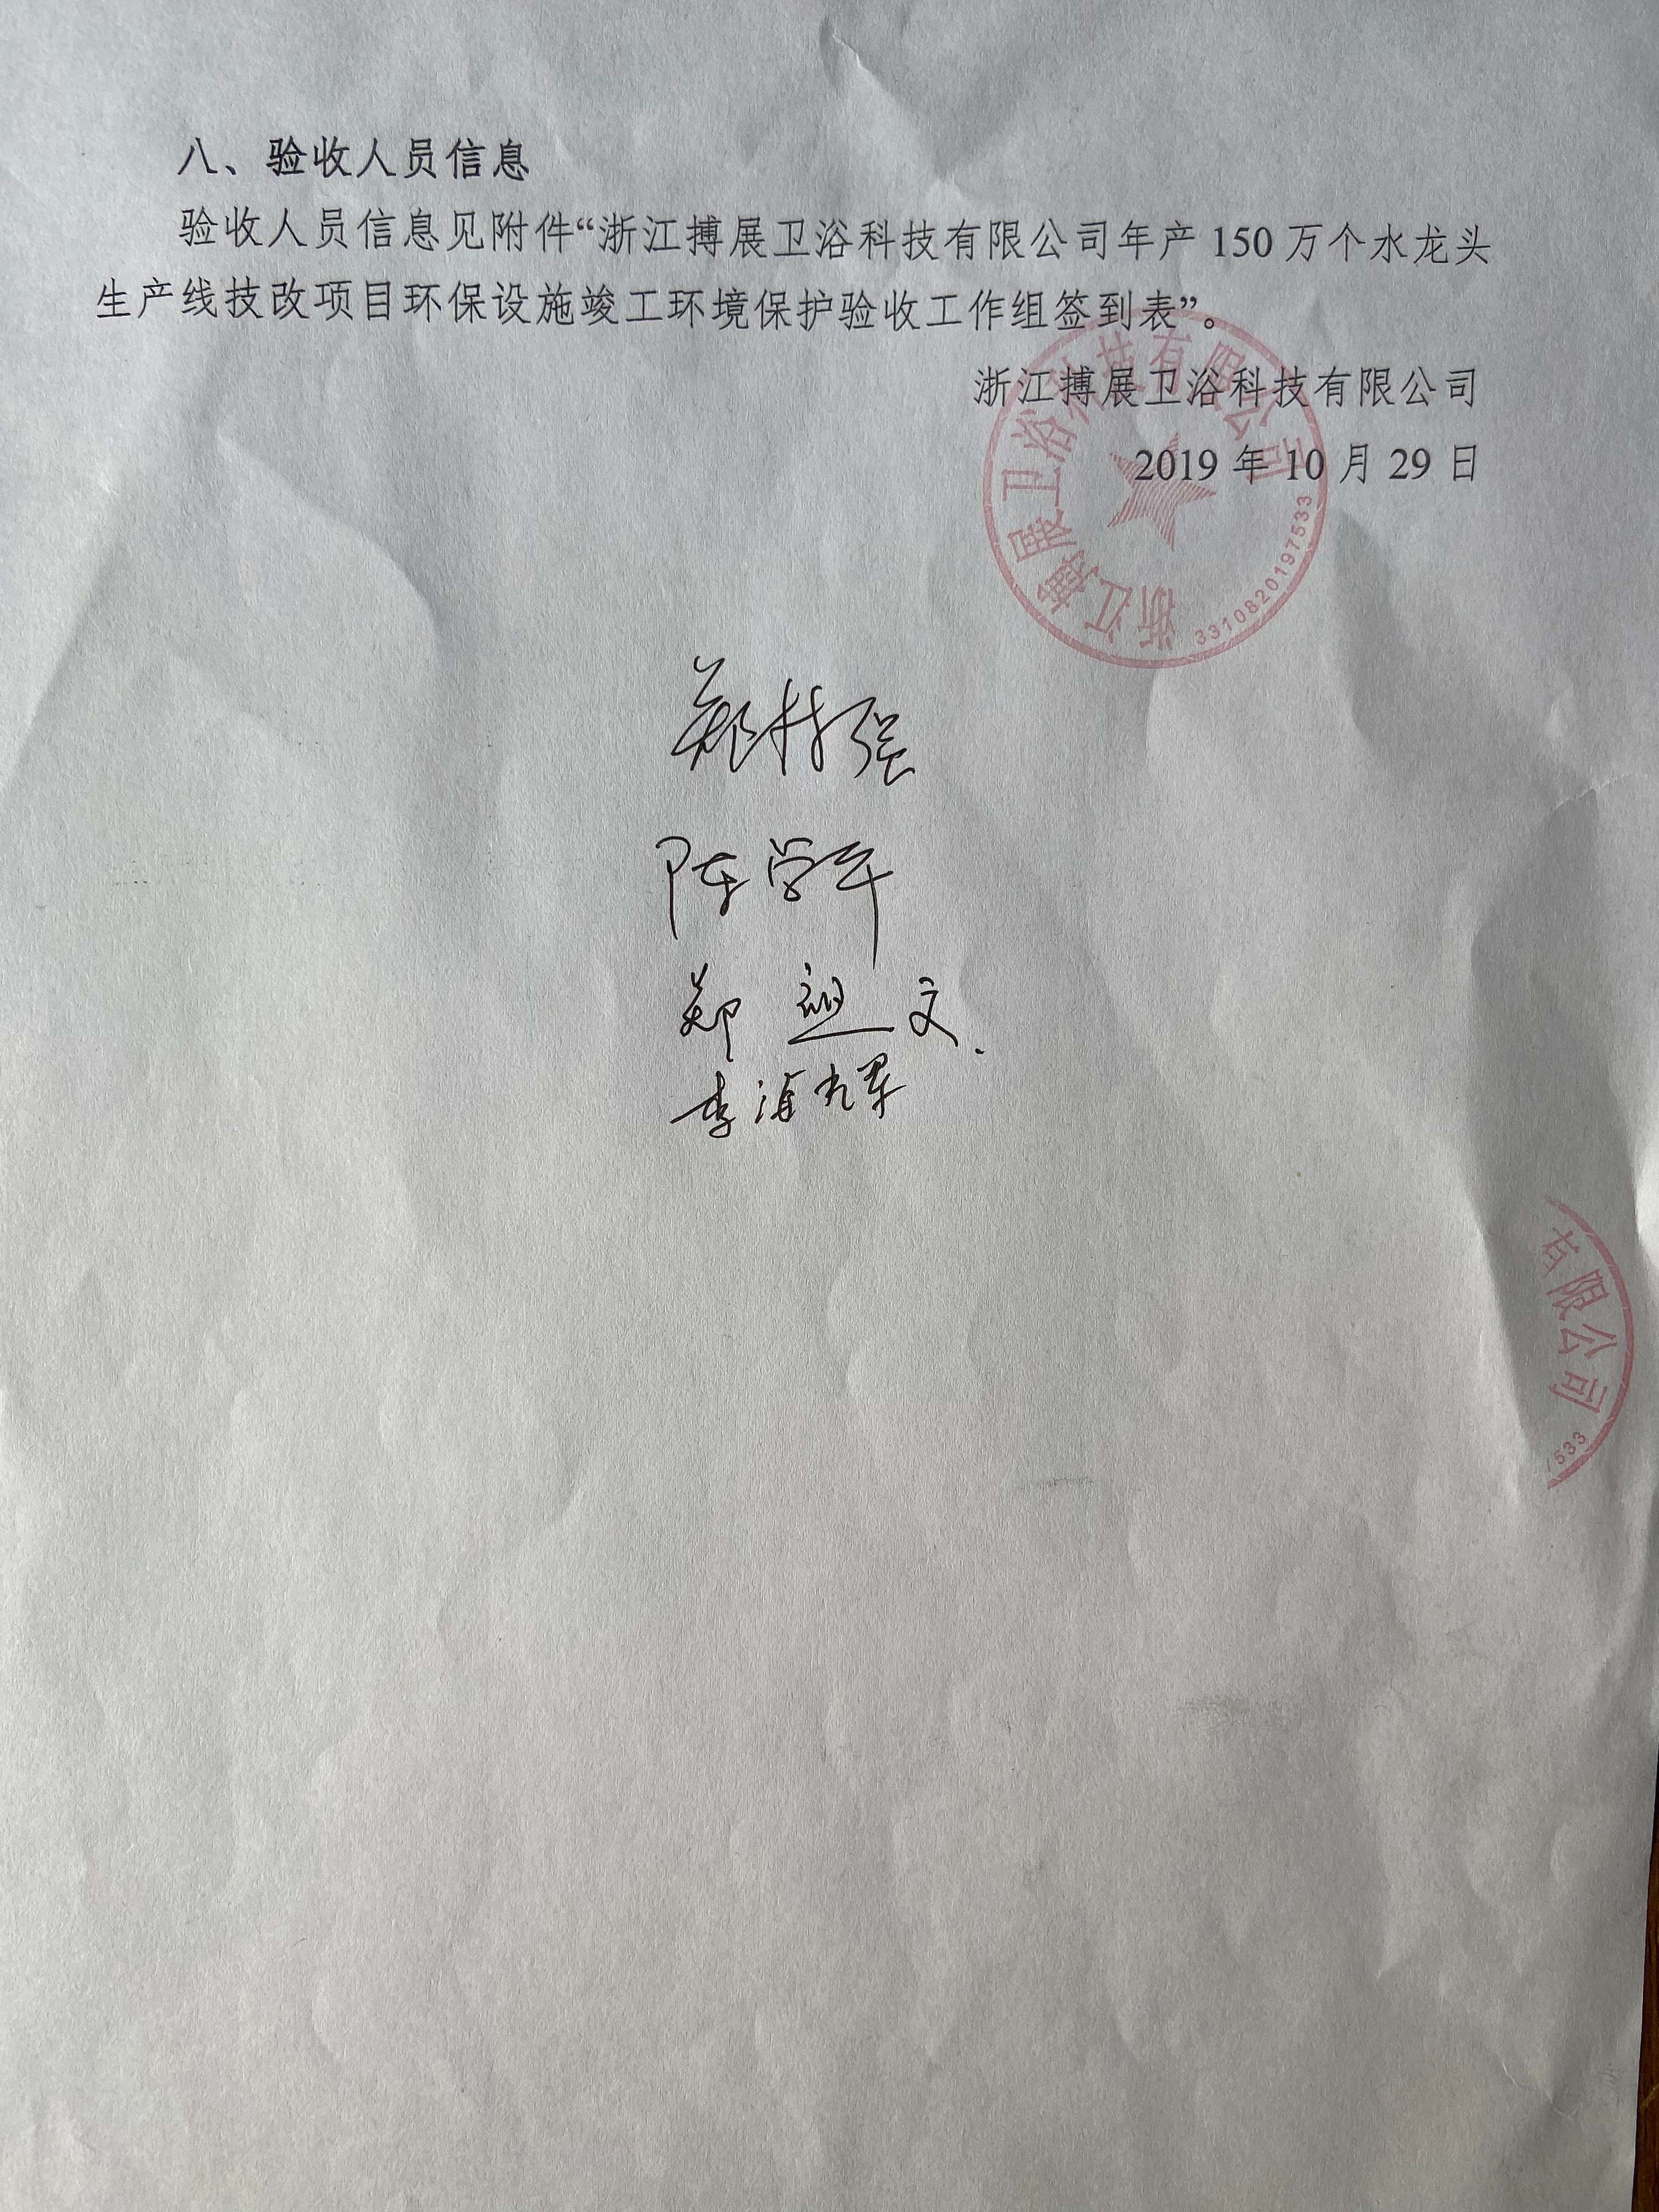 八、验收人员信息
验收人员信息见附件“浙江搏展卫浴科技有限公司年产150万个水龙头
生产线技改项目环保设施竣工环境保护验收工作组签到表”。
浙江搏展卫浴科技有限公司
2019年10月29日
浙江搏展卫浴科技有限公司
3310820197533
郑林强
陈学平
郑 文
李
有限公司
7533